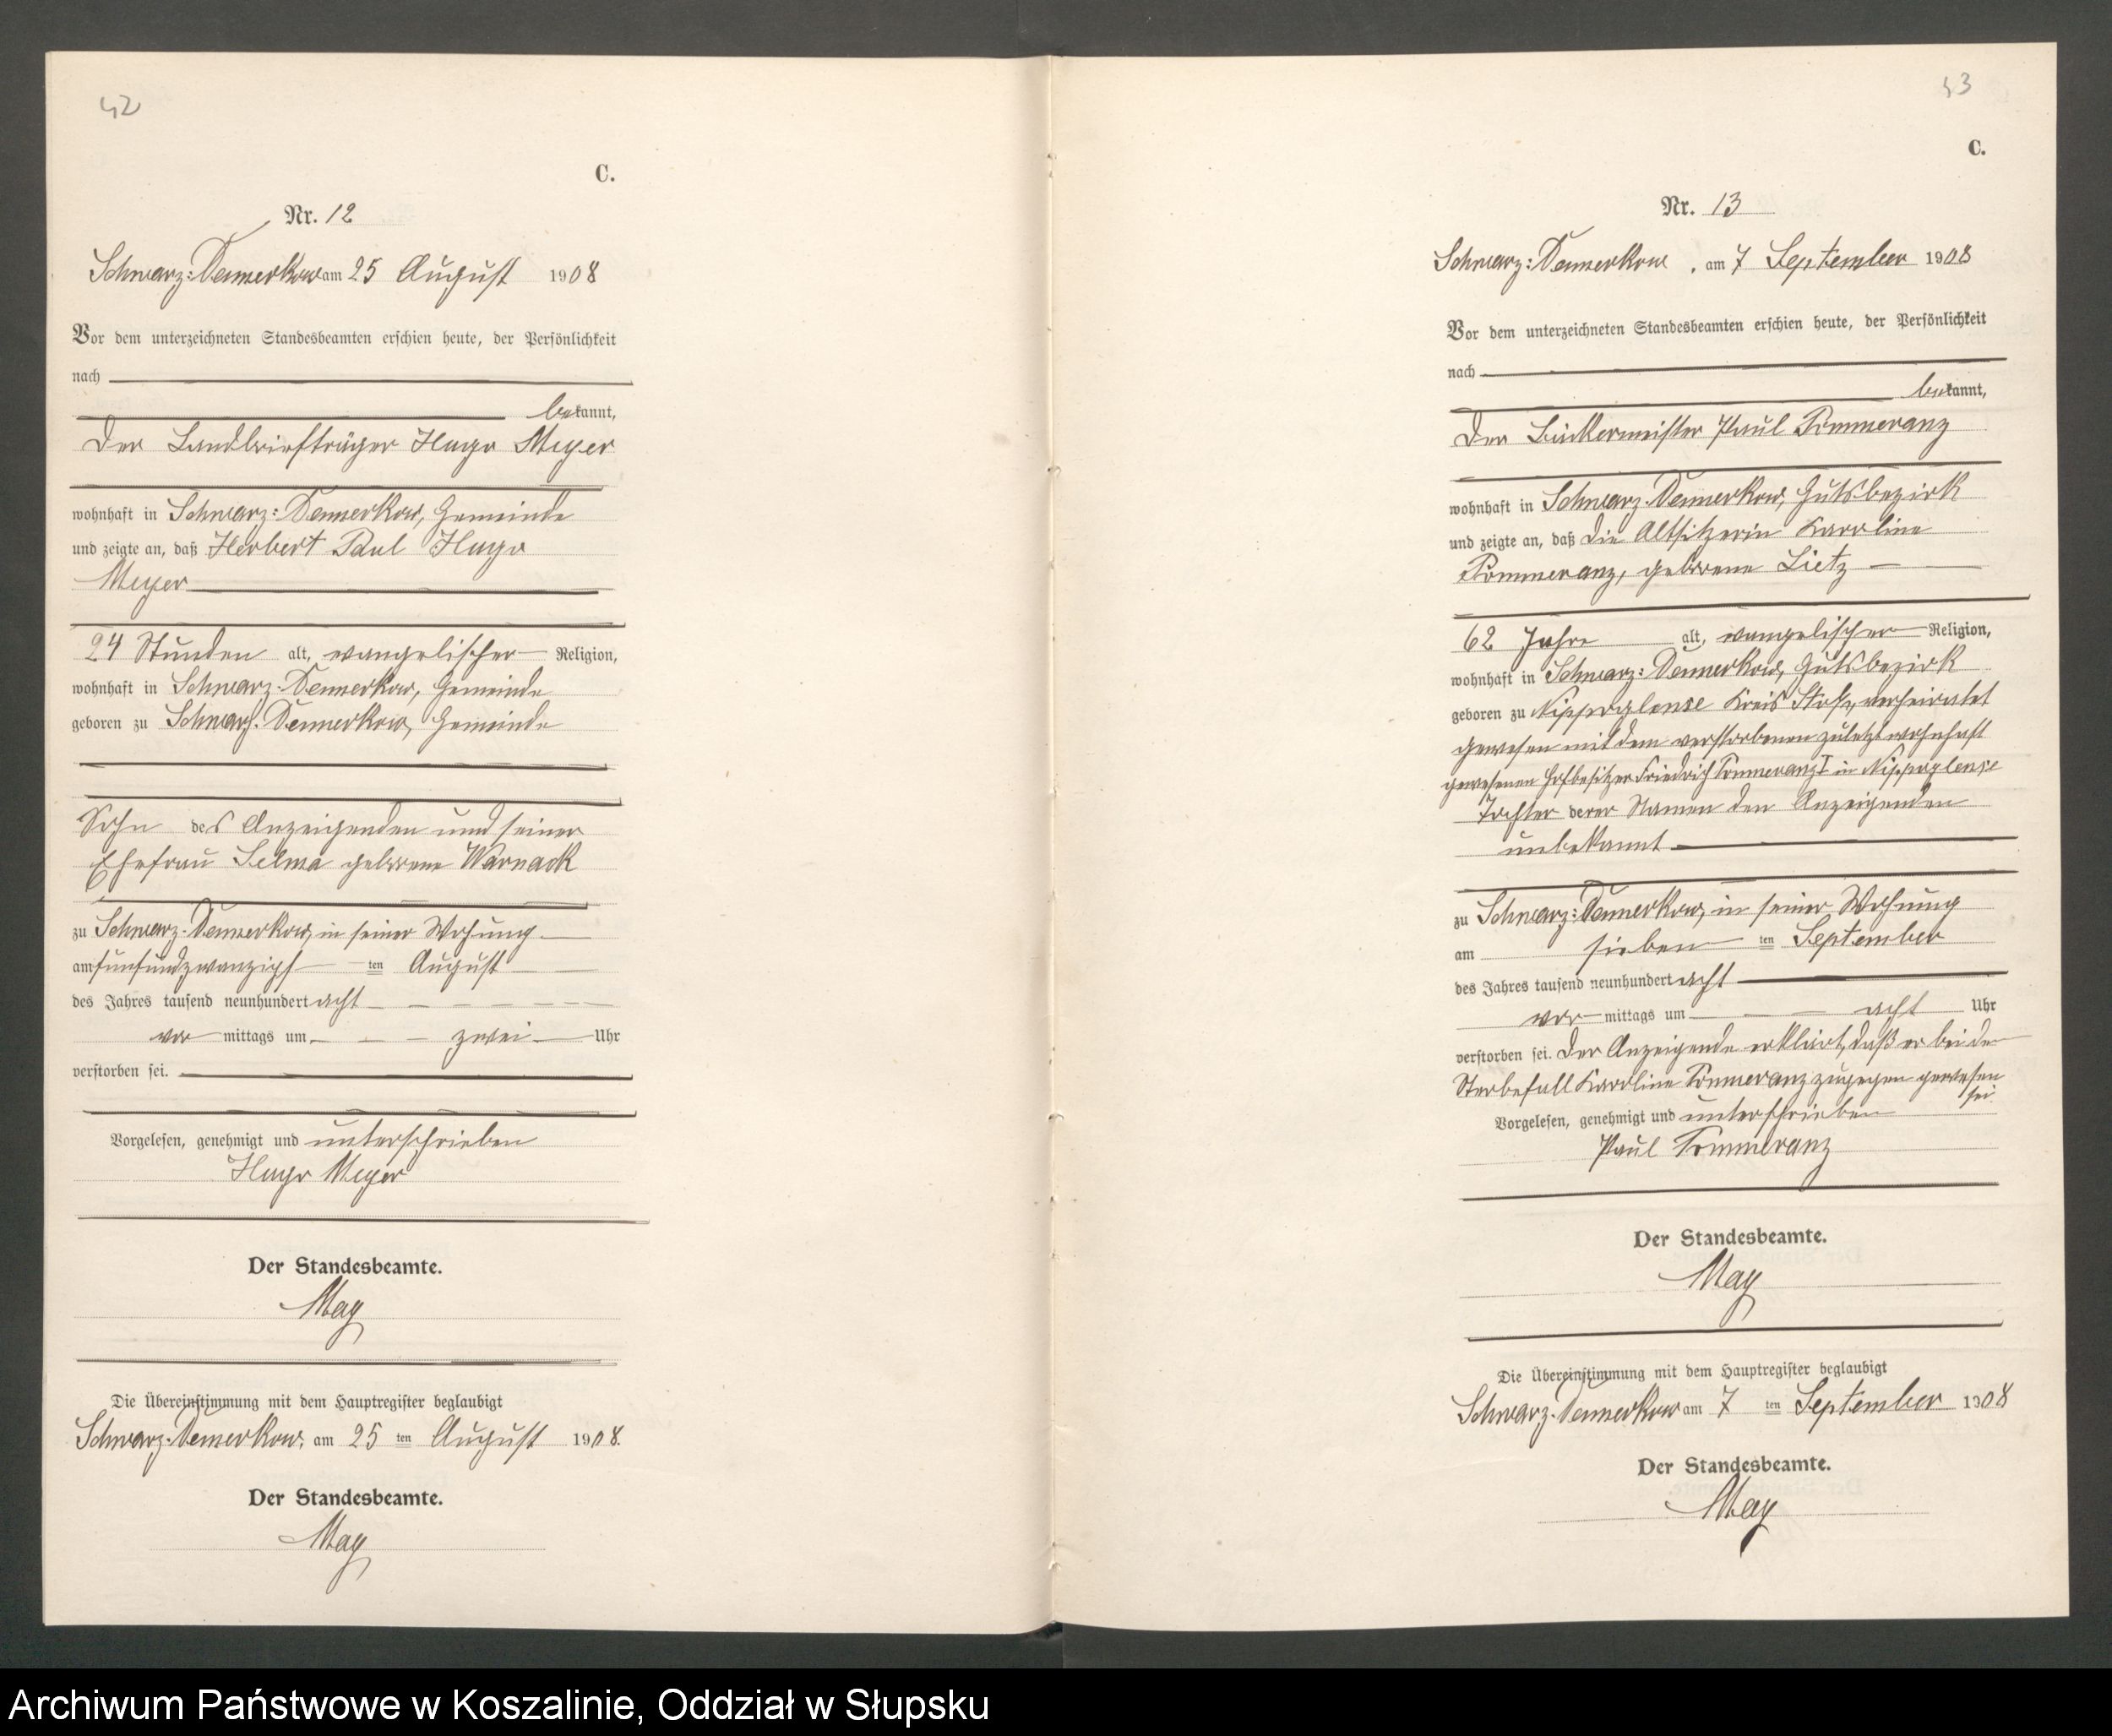 42
C.
Nr. 12
Schwarz-Damerkow am 25 August 1908
Vor dem unterzeichneten Standesbeamten erschien heute, der Persönlichkeit
nach
bekannt,
der Landbriefträger Hugo Meyer
wohnhaft in Schwarz-Damerkow, Gemeinde
und zeigte an, daß Herbert Paul Hugo
Meyer
24 Stunden alt, evangelischer Religion,
wohnhaft in Schwarz-Damerkow, Gemeinde
geboren zu Schwarz-Damerkow, Gemeinde
Sohn des Anzeigenden und seiner
Ehefrau Selma geborene Warnack
zu Schwarz-Damerkow, in seiner Wohung
am fünfundzwanzigs ten August
des Jahres tausend neunhundert acht
vor mittags um zwei Uhr
verstorben sei.
Vorgelesen, genehmigt und unterschrieben
Hugo Meyer
Der Standesbeamte.
May
Die Übereinstimmung mit dem Hauptregister beglaubigt
Schwarz-Damerkow, am 25 ten August 1908.
Der Standesbeamte.
May
43
C.
Nr. 13
Schwarz-Damerkow, am 7 September 1908
Vor dem unterzeichneten Standesbeamten erschien heute, der Persönlichkeit
nach
bekannt,
der Bäckermeister Paul Pommeranz
wohnhaft in Schwarz-Damerkow, Gutsbezirk
und zeigte an, daß die Altsitzerin Karoline
Pommeranz, geborene Lietz
62 Jahre alt, evangelischer Religion,
wohnhaft in Schwarz-Damerkow, Gutsbezirk
geboren zu Nippoglense Kreis Stolp, verheiratet
gewesen mit dem verstorbenen zuletzt wohnhaft
gewesenen Hofbesitzer Friedrich Pommeranz I in Nippoglense
Tochter derer Namen den Anzeigenden
unbekannt
zu Schwarz-Damerkow, in seiner Wohung
am sieben ten September
des Jahres tausend neunhundert acht
vor mittags um acht Uhr
verstorben sei. Der Anzeigende erklärt, daß er bei dem
Sterbefall Karoline Pommeranz zugegen gewesen
sei.
Vorgelesen, genehmigt und unterschrieben
Paul Pommeranz
Der Standesbeamte.
May
Die Übereinstimmung mit dem Hauptregister beglaubigt
Schwarz-Damerkow am 7 ten September 1908
Der Standesbeamte.
May
Archiwum Państwowe w Koszalinie, Oddział w Słupsku